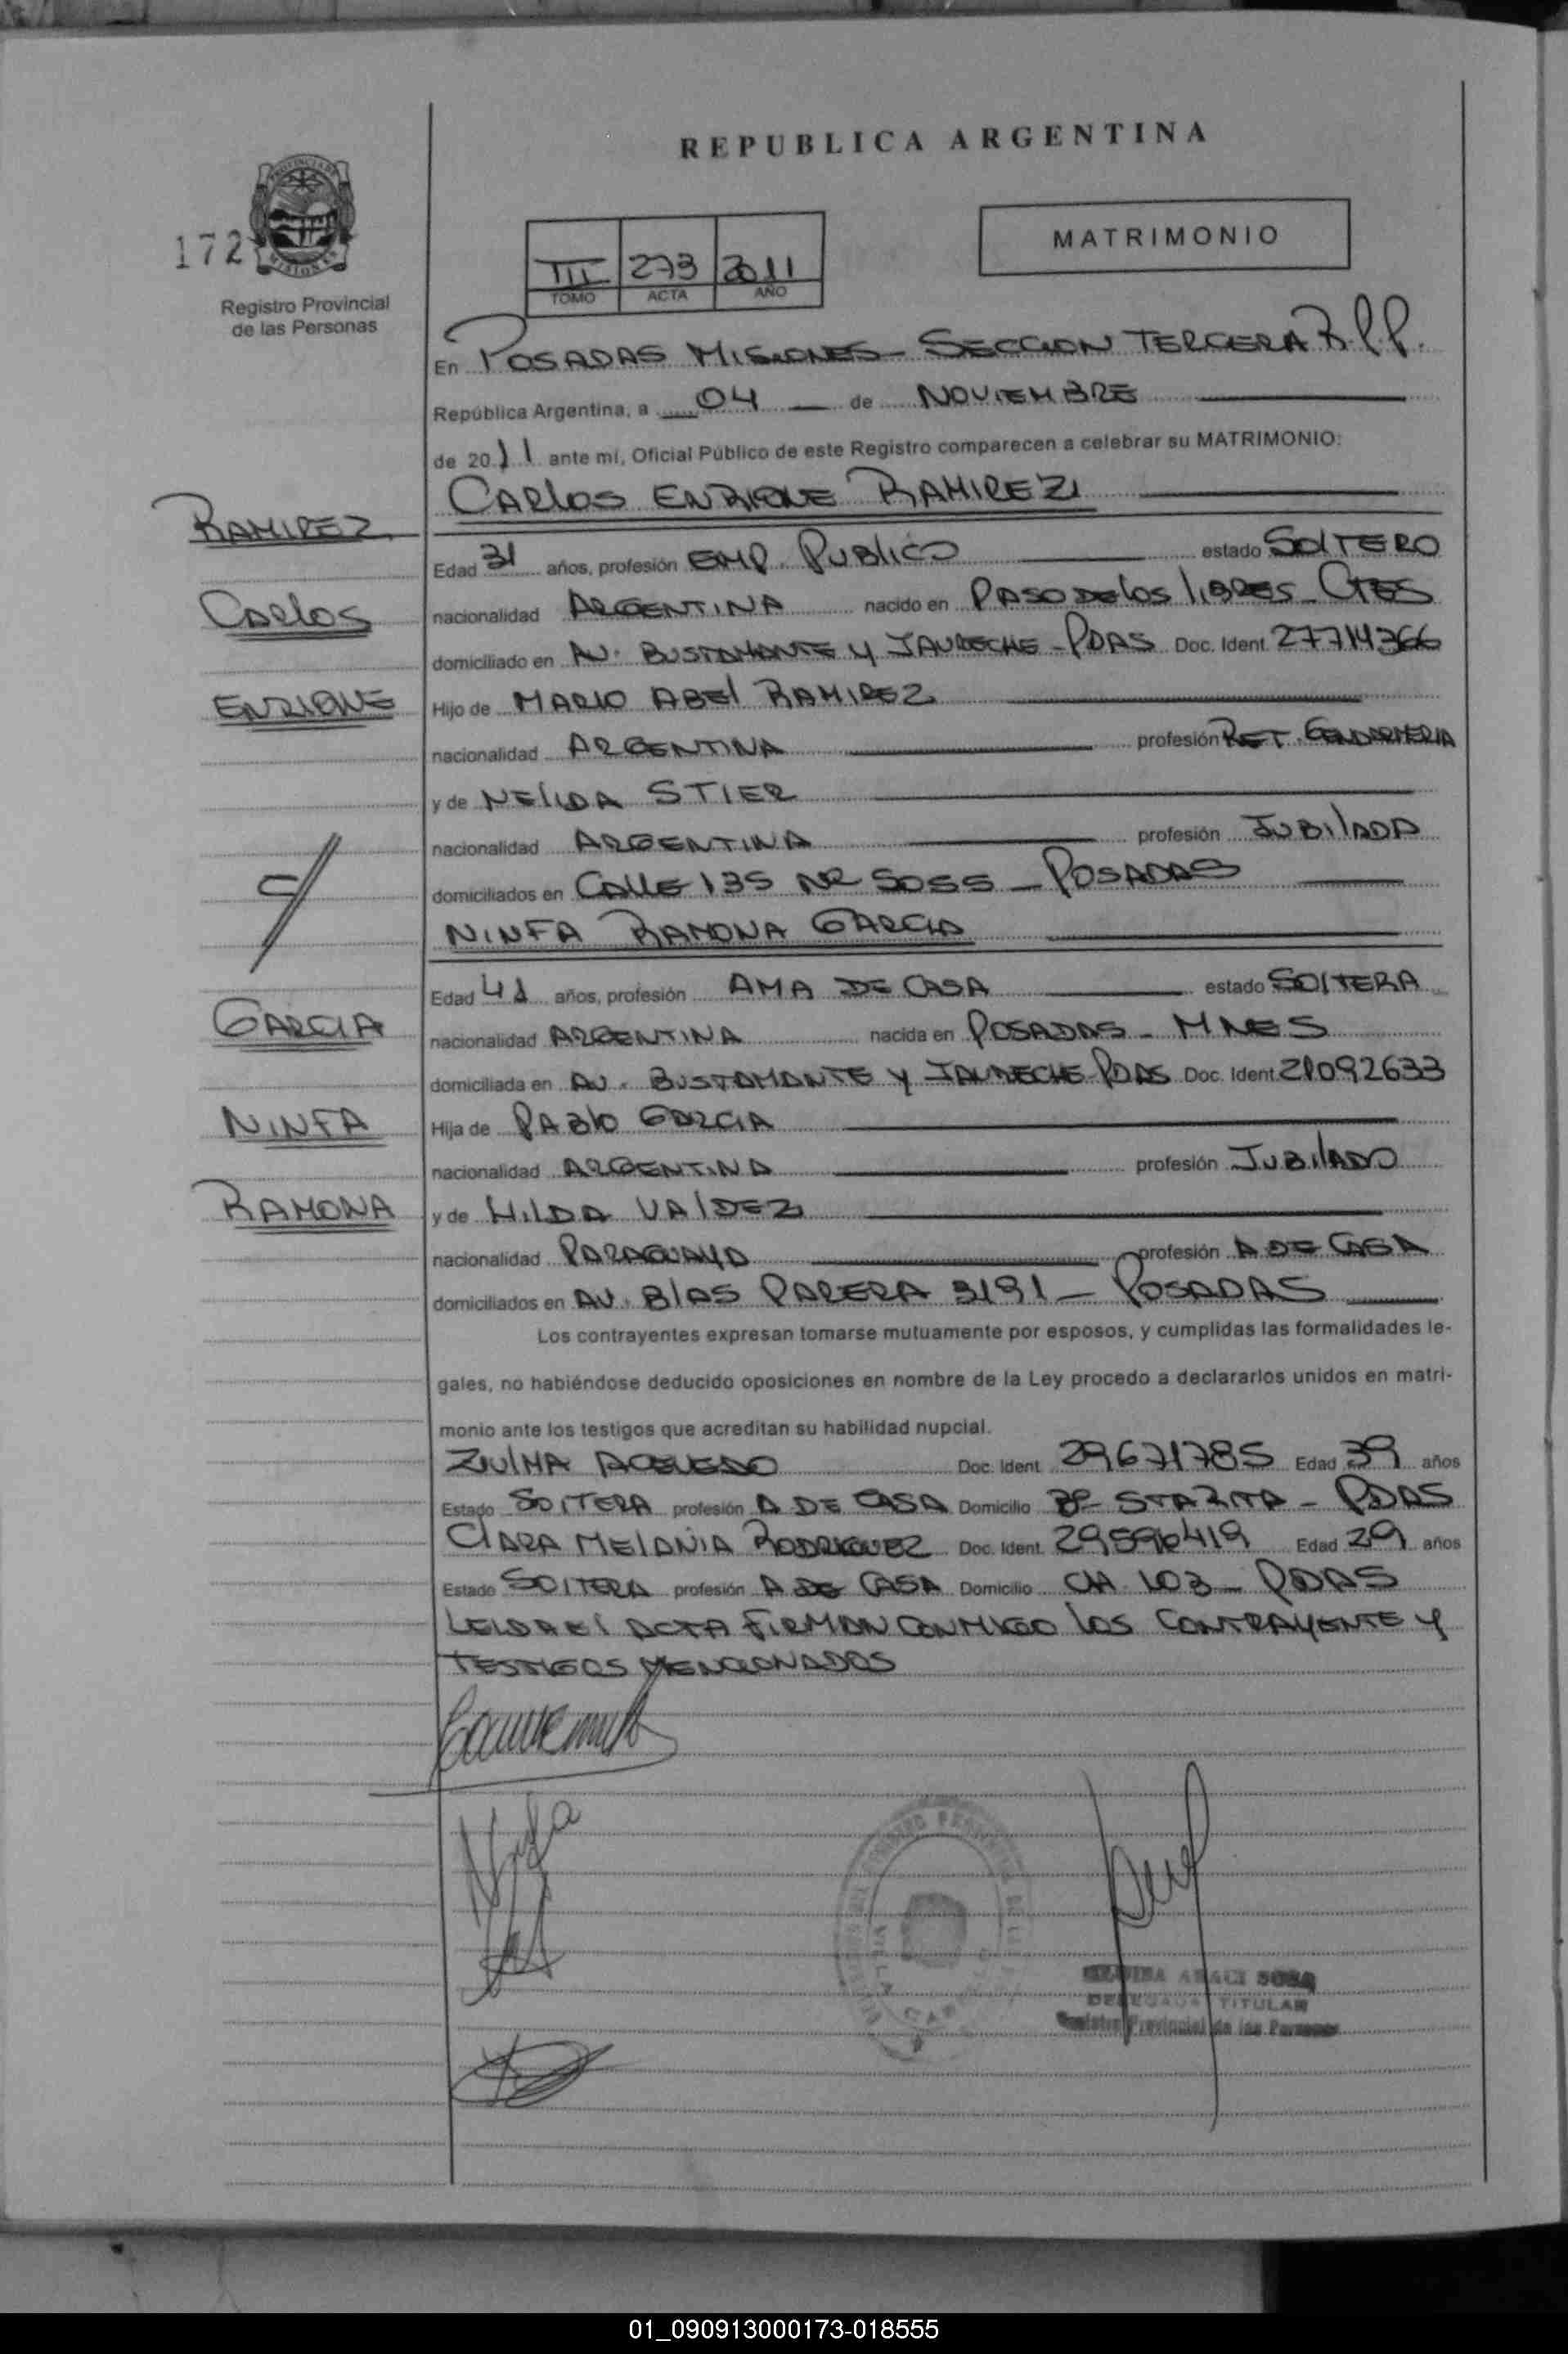 REPUBLICA ARGENTINA
PROVINCIA DE MISIONES
172
Registro Provincial
de las Personas
III 273 2011
TOMO ACTA AÑO
MATRIMONIO
En POSADAS MISIONES - SECCION TERCERA R.P.P.
República Argentina, a 04 de NOVIEMBRE
de 2011 ante mí, Oficial Público de este Registro comparecen a celebrar su MATRIMONIO:
CARLOS ENRIQUE RAMIREZ
RAMIREZ
Edad 31 años, profesión EMP. PUBLICO estado SOLTERO
CARLOS
nacionalidad ARGENTINA nacido en PASO DE LOS LIBRES - CTES
domiciliado en AV. BUSTAMANTE Y JAURECHE - PDAS Doc. Ident. 27714366
ENRIQUE
Hijo de MARIO ABEL RAMIREZ
nacionalidad ARGENTINA profesión RET. GENDARMERIA
y de NELIDA STIER
nacionalidad ARGENTINA profesión JUBILADA
domiciliados en CALLE 135 NR 5055 - POSADAS
C/
NINFA RAMONA GARCIA
Edad 41 años, profesión AMA DE CASA estado SOLTERA
GARCIA
nacionalidad ARGENTINA nacida en POSADAS - MNES
domiciliada en AV. BUSTAMANTE Y JAURECHE - PDAS Doc. Ident. 21092633
NINFA
Hija de PABLO GARCIA
nacionalidad ARGENTINA profesión JUBILADO
RAMONA
y de HILDA VALDEZ
nacionalidad PARAGUAYA profesión A DE CASA
domiciliados en AV. BLAS PARERA 3191 - POSADAS
Los contrayentes expresan tomarse mutuamente por esposos, y cumplidas las formalidades le-
gales, no habiéndose deducido oposiciones en nombre de la Ley procedo a declararlos unidos en matri-
monio ante los testigos que acreditan su habilidad nupcial.
ZULMA ACEVEDO Doc. Ident. 29671785 Edad 39 años
Estado SOLTERA profesión A DE CASA Domicilio Bº STA RITA - PDAS
CLARA MELANIA RODRIGUEZ Doc. Ident. 29596419 Edad 29 años
Estado SOLTERA profesión A DE CASA Domicilio CH 103 - PDAS
LEIDA EL ACTA FIRMAN CONMIGO LOS CONTRAYENTE Y
TESTIGOS MENCIONADOS
ARACI SOSA
DELEGADA TITULAR
Registro Provincial de las Personas
01_090913000173-018555